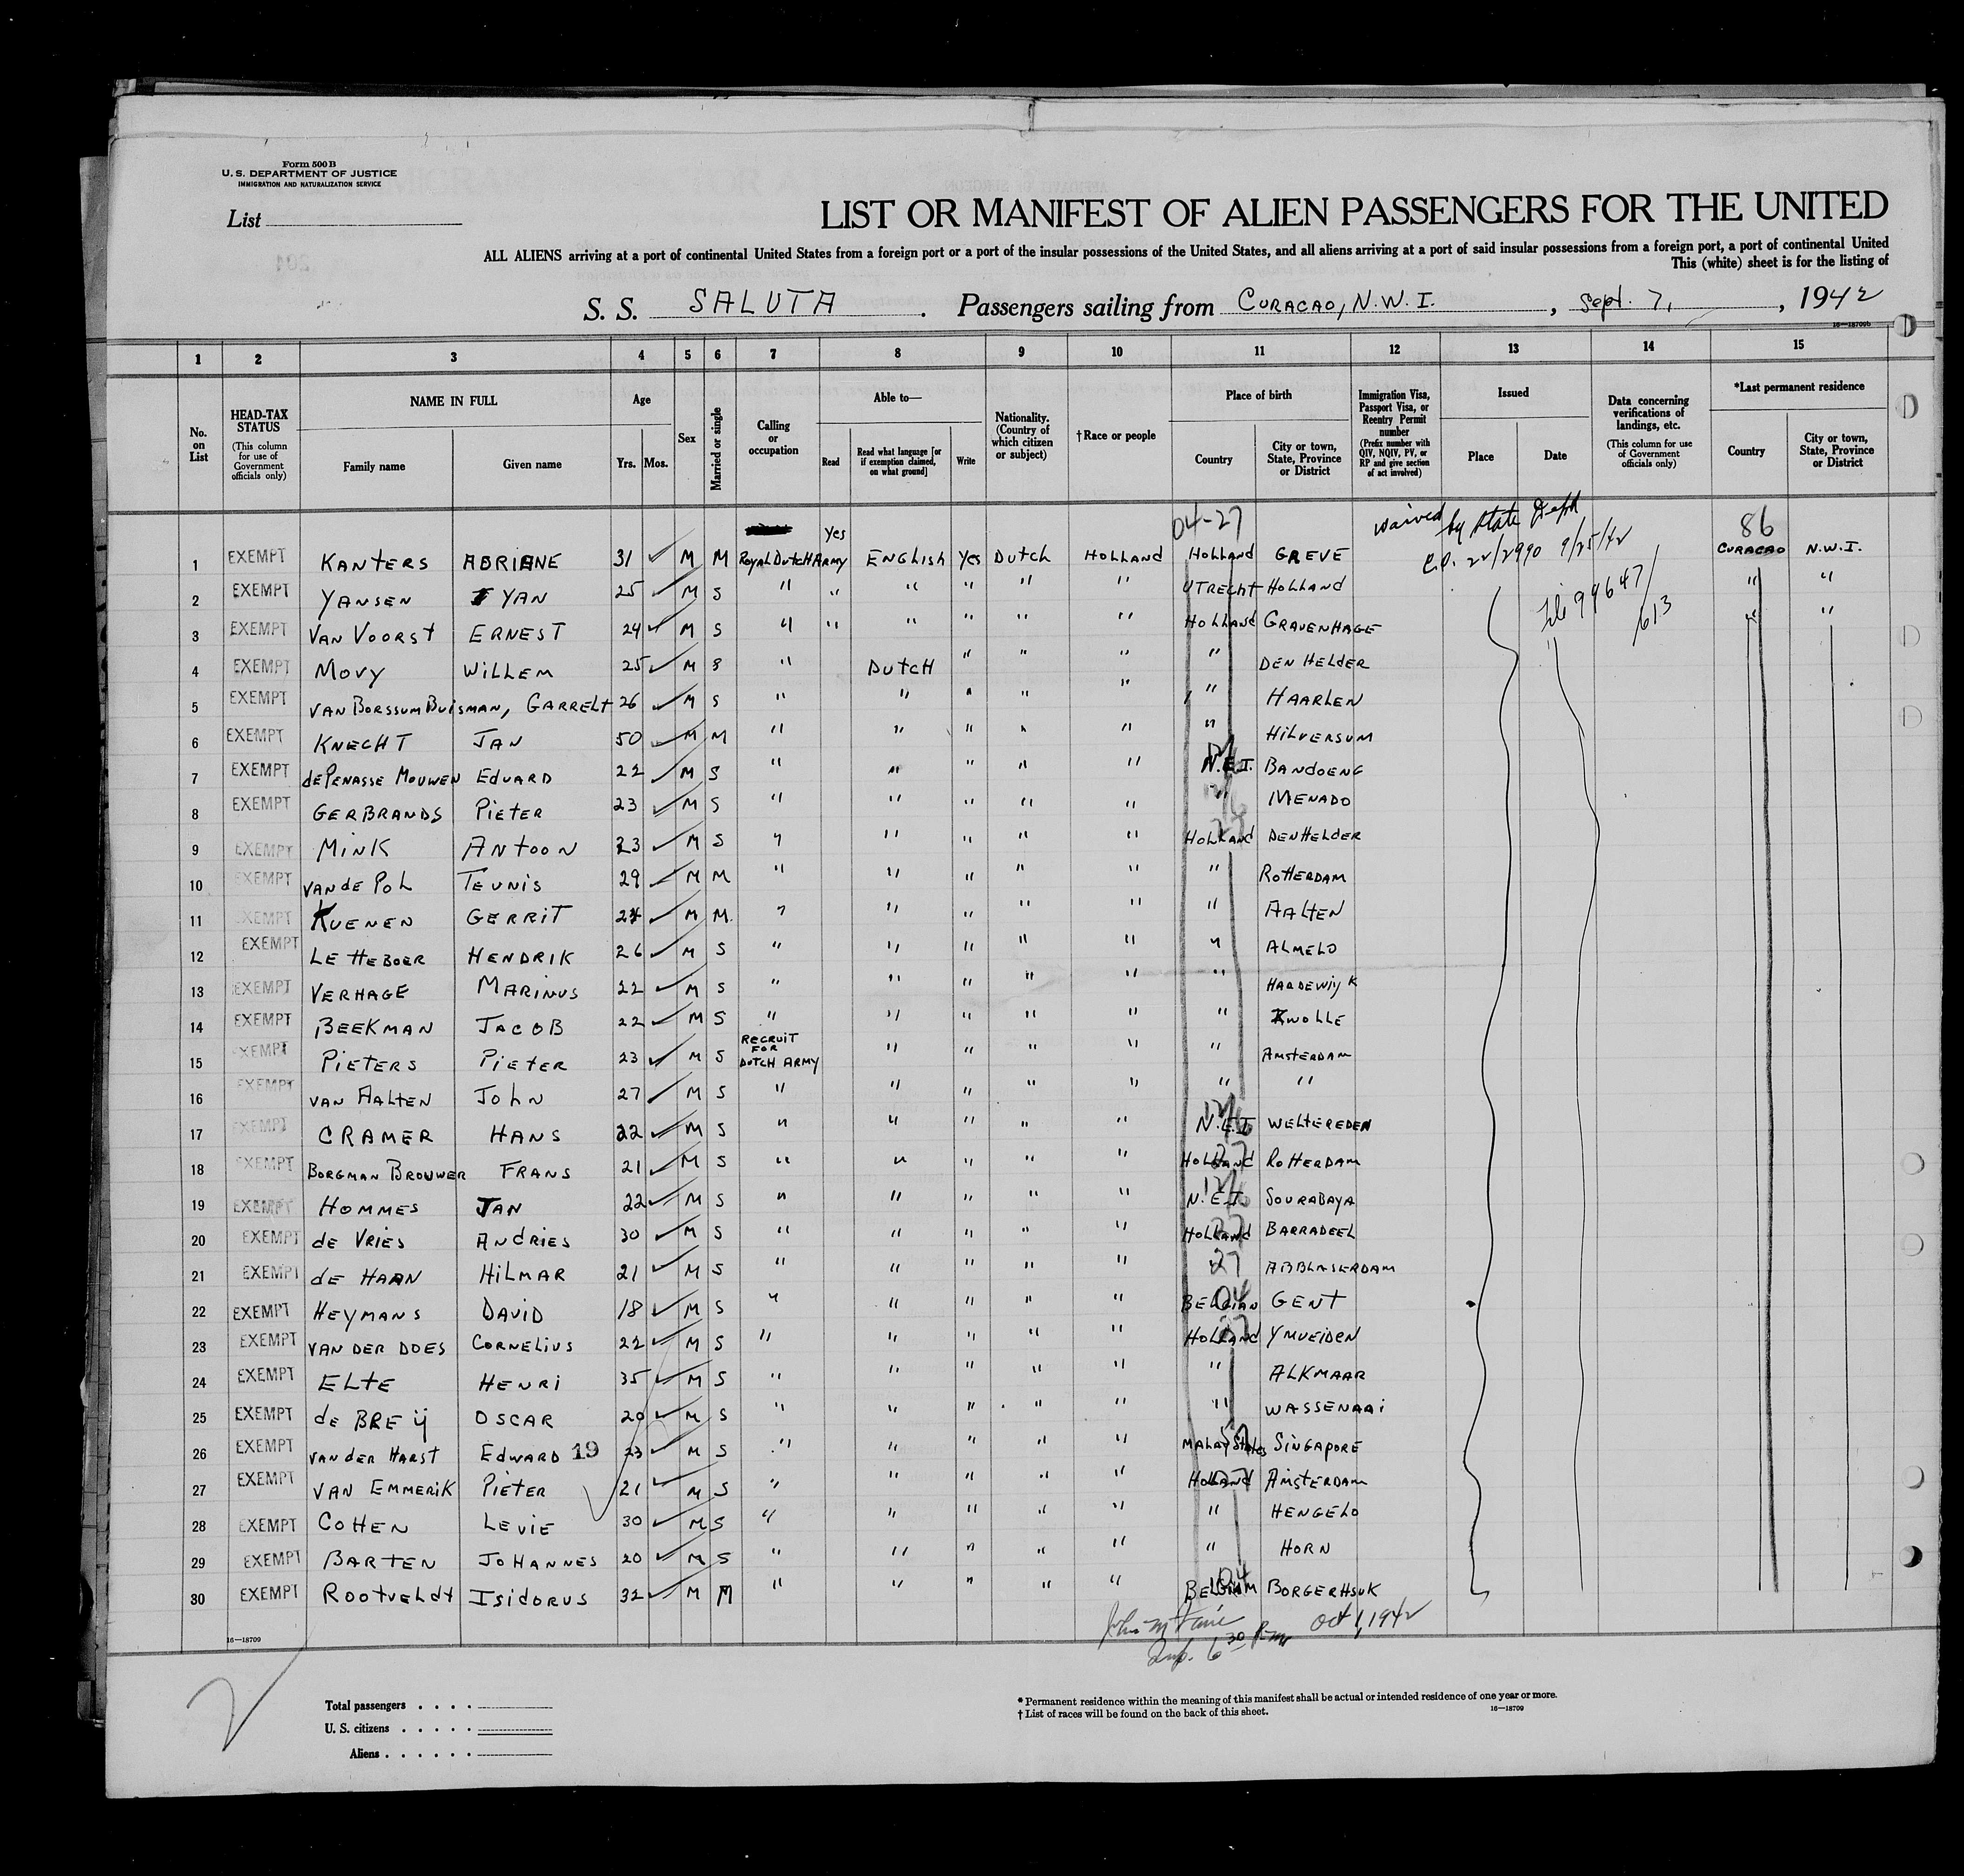 Form 500 B
U. S. DEPARTMENT OF JUSTICE
IMMIGRATION AND NATURALIZATION SERVICE
List
LIST OR MANIFEST OF ALIEN PASSENGERS FOR THE UNITED
ALL ALIENS arriving at a port of continental United States from a foreign port or a port of the insular possessions of the United States, and all aliens arriving at a port of said insular possessions from a foreign port, a port of continental United
This (white) sheet is for the listing of
S. S. SALUTA. Passengers sailing from CURACAO, N.W.I., Sept. 7, , 1942
16—18709b
1 2 3 4 5 6 7 8 9 10 11 12 13 14 15
No. on List
HEAD-TAX STATUS (This column for use of Government officials only)
NAME IN FULL Family name Given name
Age Yrs. Mos.
Sex
Married or single
Calling or occupation
Able to— Read Read what language [or if exemption claimed, on what ground] Write
Nationality. (Country of which citizen or subject)
†Race or people
Place of birth Country City or town, State, Province or District
Immigration Visa, Passport Visa, or Reentry Permit number (Prefix number with QIV, NQIV, PV, or RP and give section of act involved)
Issued Place Date
Data concerning verifications of landings, etc. (This column for use of Government officials only)
*Last permanent residence Country City or town, State, Province or District
04-27 waived by State Dept 86
1 EXEMPT KANTERS ADRIANE 31 ✓ M M Royal Dutch Army yes ENGLISH yes Dutch HOLLAND HOLLAND GREVE 9/25/42 CURACAO N.W.I.
2 EXEMPT YANSEN YAN 25 ✓ M S " " " " " " UTRECHT HOLLAND 99647/613 " "
3 EXEMPT VAN VOORST ERNEST 24 ✓ M S " " " " " " HOLLAND GRAVENHAGE " "
4 EXEMPT MOVY WILLEM 25 ✓ M S " DUTCH " " " " DEN HELDER "
5 EXEMPT VAN BORSSUM BUISMAN, GARRELT 26 ✓ M S " " " " " " HAARLEN
6 EXEMPT KNECHT JAN 50 ✓ M M " " " " " " HILVERSUM
7 EXEMPT de PENASSE MOUWEN EDUARD 22 ✓ M S " " " " " N.E.I. BANDOENG
8 EXEMPT GERBRANDS PIETER 23 ✓ M S " " " " " " MENADO
9 EXEMPT MINK ANTOON 23 ✓ M S " " " " " HOLLAND DEN HELDER
10 EXEMPT VAN de POL TEUNIS 29 ✓ M M " " " " " " ROTTERDAM
11 EXEMPT KUENEN GERRIT ✓ M M. " " " " " " AALTEN
12 EXEMPT LE HEBOER HENDRIK 26 ✓ M S " " " " " " ALMELO
13 EXEMPT VERHAGE MARINUS 22 ✓ M S " " " " " " HARDEWIJK
14 EXEMPT BEEKMAN JACOB 22 ✓ M S " " " " " " ZWOLLE
15 EXEMPT PIETERS PIETER 23 ✓ M S RECRUIT FOR DUTCH ARMY " " " " " AMSTERDAM
16 EXEMPT VAN AALTEN JOHN 27 ✓ M S " " " " " " "
17 EXEMPT CRAMER HANS 22 ✓ M S " " " " " N.E.I WELTEREDEN
18 EXEMPT BORGMAN BROUWER FRANS 21 ✓ M S " " " " " HOLLAND ROTTERDAM
19 EXEMPT HOMMES JAN 22 ✓ M S " " " " " N.E.I. SOURABAYA
20 EXEMPT de VRIES ANDRIES 30 ✓ M S " " " " " HOLLAND BARRADEEL
21 EXEMPT de HAAN HILMAR 21 ✓ M S " " " " " 27 ABBLASERDAM
22 EXEMPT HEYMANS DAVID 18 ✓ M S " " " " " BELGIAN GENT
23 EXEMPT VAN DER DOES CORNELIUS 22 ✓ M S " " " " " HOLLAND YMUEIDEN
24 EXEMPT ELTE HENRI 35 ✓ M S " " " " " " ALKMAAR
25 EXEMPT de BREIJ OSCAR 20 ✓ M S " " " " " " WASSENAAI
26 EXEMPT VAN DER HARST EDWARD 19 23 ✓ M S " " " " " MALAY States SINGAPORE
27 EXEMPT VAN EMMERIK PIETER 21 ✓ M S " " " " " HOLLAND AMSTERDAM
28 EXEMPT COHEN LEVIE 30 ✓ M S " " " " " " HENGELO
29 EXEMPT BARTEN JOHANNES 20 ✓ M S " " " " " " HORN
30 EXEMPT ROOTVELDT ISIDORUS 32 ✓ M M " " " " " BELGIUM BORGERHSUK
Oct 1, 1942
6 30 P.m.
16—18709
Total passengers . . . .
U. S. citizens . . . . .
Aliens . . . . . .
* Permanent residence within the meaning of this manifest shall be actual or intended residence of one year or more.
† List of races will be found on the back of this sheet.
16—18709